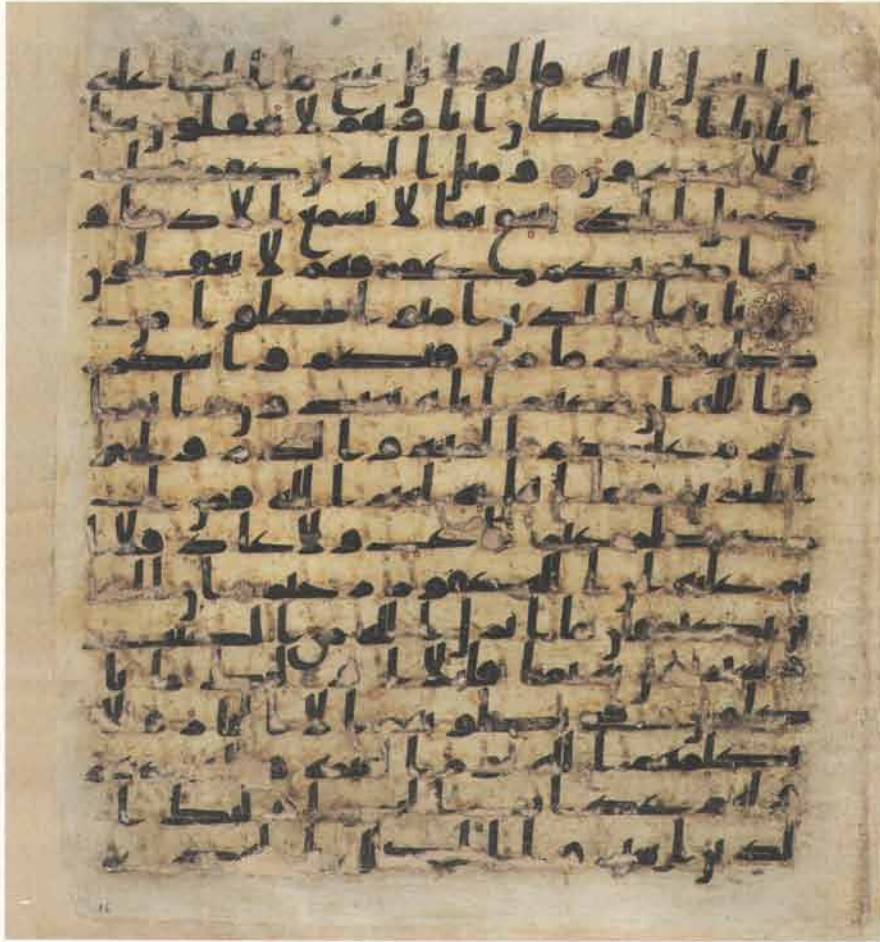 ما انزل الله قالوا بل نتبع ما الفينا عليه
ابانا اولو كان اباوهم لا يعقلون شيا
ولا يهتدون ومثل الذين كفروا
كمثل الذي ينعق بما لا يسمع الا دعا و
ندا صم بكم عمي فهم لا يعقلون
يايها الذين امنوا كلوا من
طيبت ما رزقنكم واشكرو
ا لله ان كنتم اياه تعبدون انما
حرم عليكم الميته والدم ولحم
الخنزير وما اهل به لغير الله فمن ا
ضطر غير باغ ولا عاد فلا ا
ثم عليه ان الله غفور رحيم ان الذ
ين يكتمون ما انزل الله من الكتب
ويشترون به ثمنا قليلا اولئك ما يا
كلون في بطونهم الا النار ولا
يكلمهم الله يوم القيمه ولا يزكيهم
ولهم عذاب اليم اولئك ا
لذين اشتروا